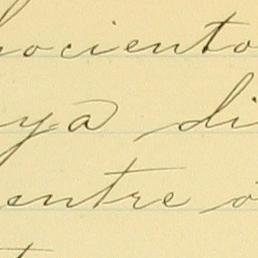 nociento
ya di
entre o